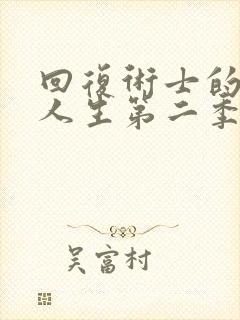 回復術士的
人生第二季
吴富村